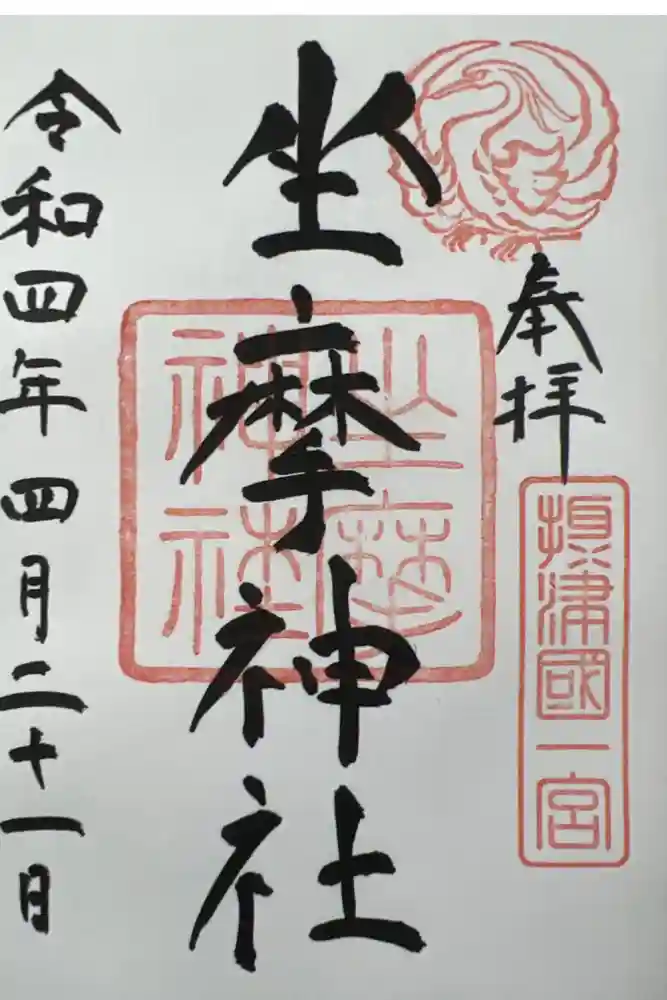 奉拝
摂津國一宮
坐摩神社
坐摩神社
令和四年四月二十一日